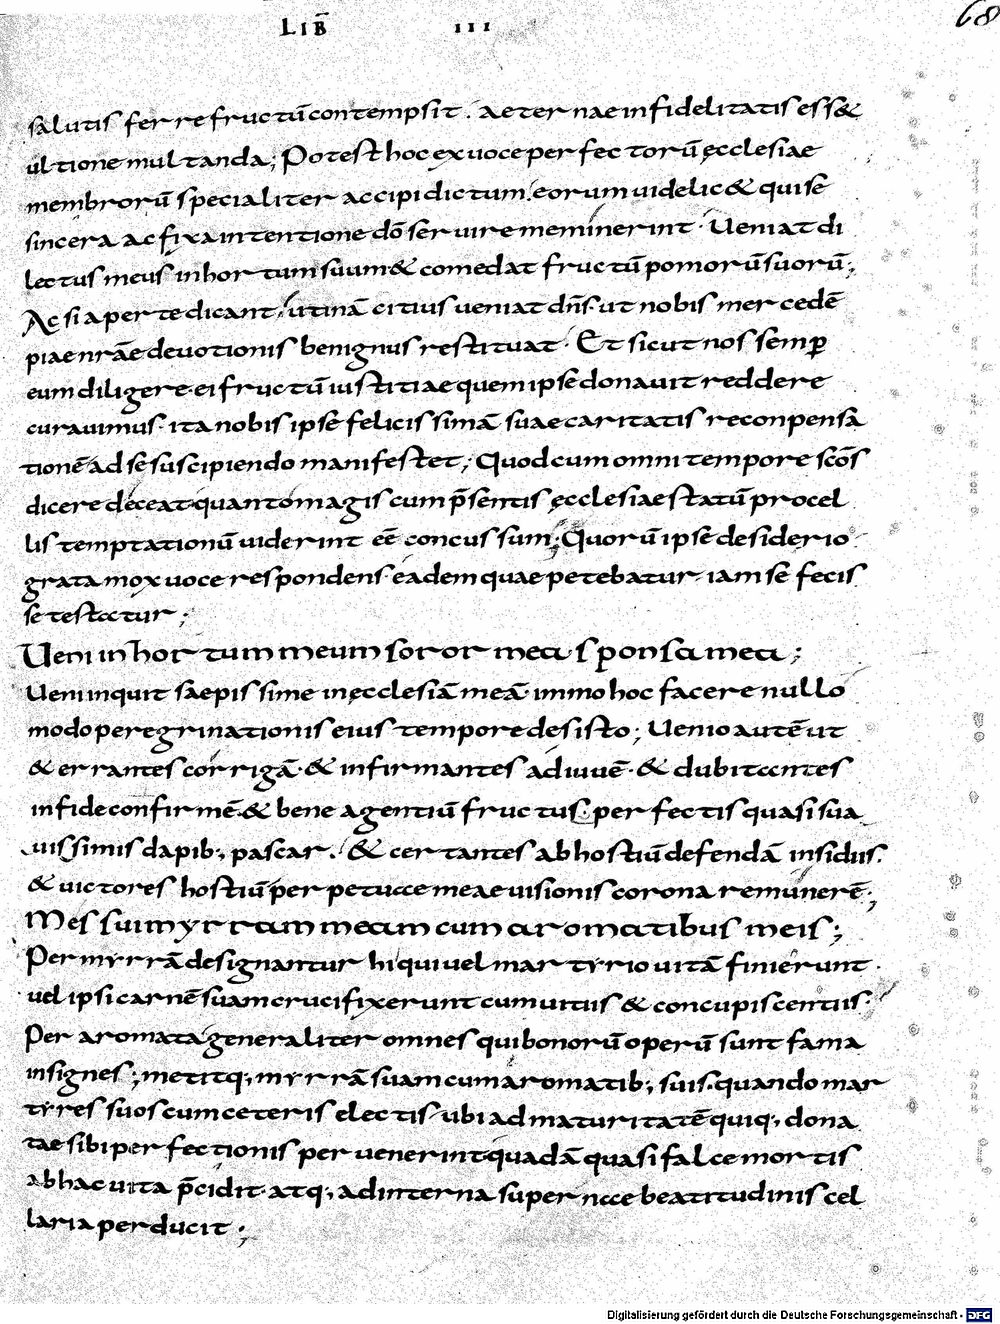 LIB̄ III 68
salutis ferre fructū contempsit. aeternae infidelitatis ess&
ultione multanda; Potest hoc ex uoce perfectorū ęcclesiae
membrorū specialiter accipi dictum. eorum uidelic& qui se
sincera ac fixa intentione dō seruire meminerint. Ueniat di
lectus meus in hortum suum & comedat fructū pomorū suorū;
Ac si aperte dicant. utinā citius ueniat dn̄s ut nobis mercedē
piae nrāe deuotionis benignus restituat. Et sicut nos semꝑ
eum diligere. ei fructū iustitiae quem ipse donauit reddere
curauimus. ita nobis ipse felicissimā suae caritatis reconpensa
tionē ad se suscipiendo manifestet; Quod cum omni tempore scōs
dicere deceat. quanto magis cum p̄sentis ęcclesiae statū procel
lis temptationū uiderint eē concussum; Quorū ipse desiderio
grata mox uoce respondens. eadem quae petebatur iam se fecis
se testatur;
Ueni in hortum meum soror mea sponsa mea;
Ueni inquit saepissime in ęcclesiā meā. immo hoc facere nullo
modo peregrinationis eius tempore desisto; Uenio autē ut
& errantes corrigā. & infirmantes adiuuē. & dubitantes
in fide confirmē. & bene agentiū fructus. perfectis quasi sua
uissimis dapib; pascar. & certantes ab hostiū defendā insidiis.
& uictores hostiū perpetuae meae uisionis corona remunerē;
Messui myrram meam cum aromatibus meis;
Per myrrā designantur hi qui uel martyrio uitā finierunt.
uel ipsi carnē suam crucifixerunt cum uitiis & concupiscentiis.
Per aromata generaliter omnes qui bonorū operū sunt fama
insignes; metitq; myrrā suam cum aromatib; suis. quando mar
tyres suos cum ceteris electis. ubi ad maturitatē quiq; dona
tae sibi perfectionis peruenerint. quadā quasi falce mortis
ab hac uita p̄cidit. atq; ad interna supernae beatitudinis cel
laria perducit;
Digitalisierung gefördert durch die Deutsche Forschungsgemeinschaft - DFG